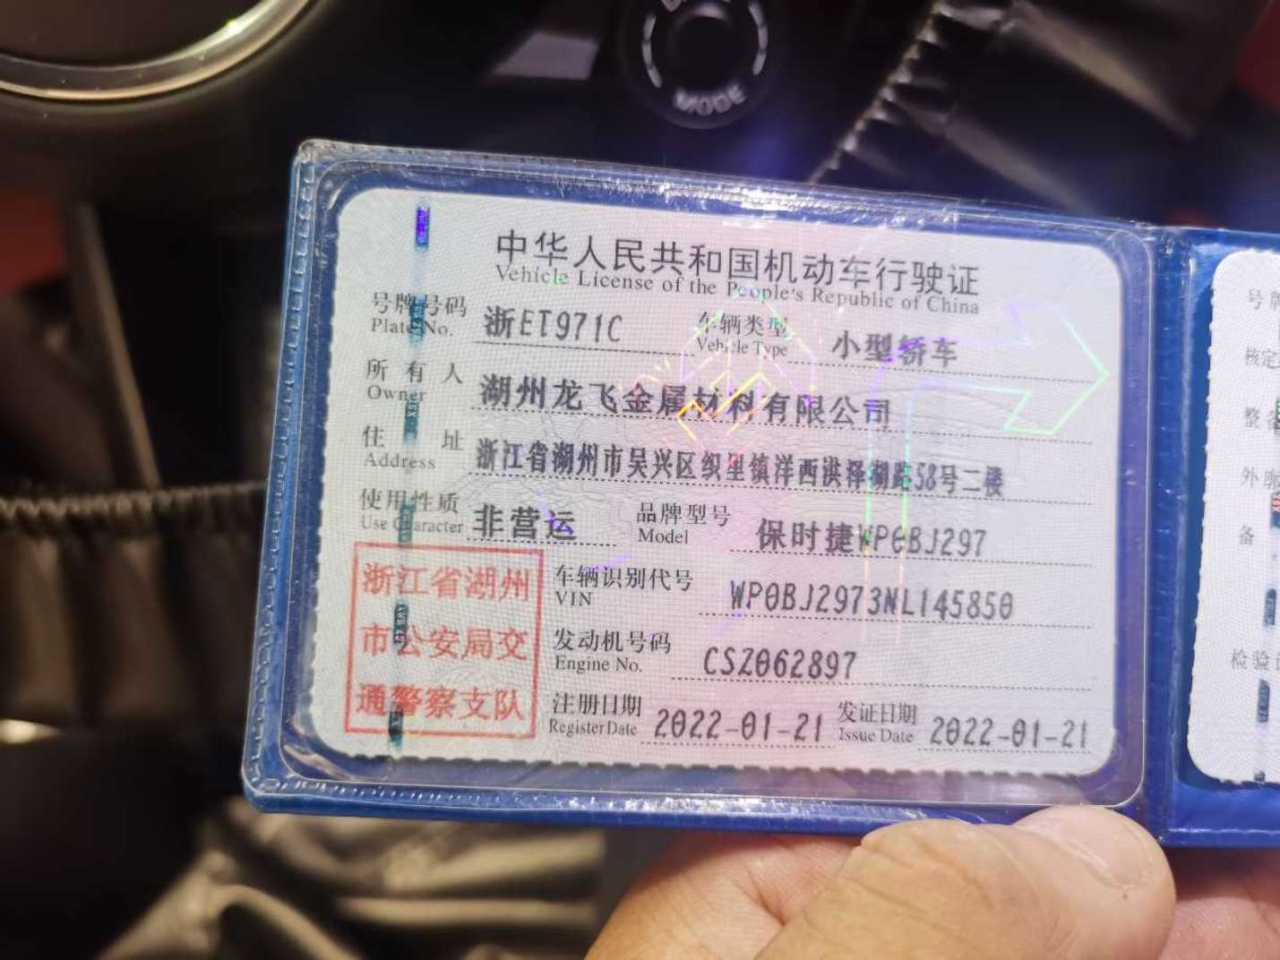 MODE
中华人民共和国机动车行驶证
Vehicle License of the People's Republic of China
号牌号码 浙ET971C 车辆类型 小型轿车
Plate No. Vehicle Type
所有人 湖州龙飞金属材料有限公司
Owner
住址 浙江省湖州市吴兴区织里镇洋西洪泽湖路58号二楼
Address
使用性质 非营运 品牌型号 保时捷WP0BJ297
Use Character Model
浙江省湖州
市公安局交
通警察支队
车辆识别代号 WP0BJ2973NL145850
VIN
发动机号码 CSZ062897
Engine No.
注册日期 2022-01-21 发证日期 2022-01-21
Register Date Issue Date
号牌
核定
整备
外廓
备
检验